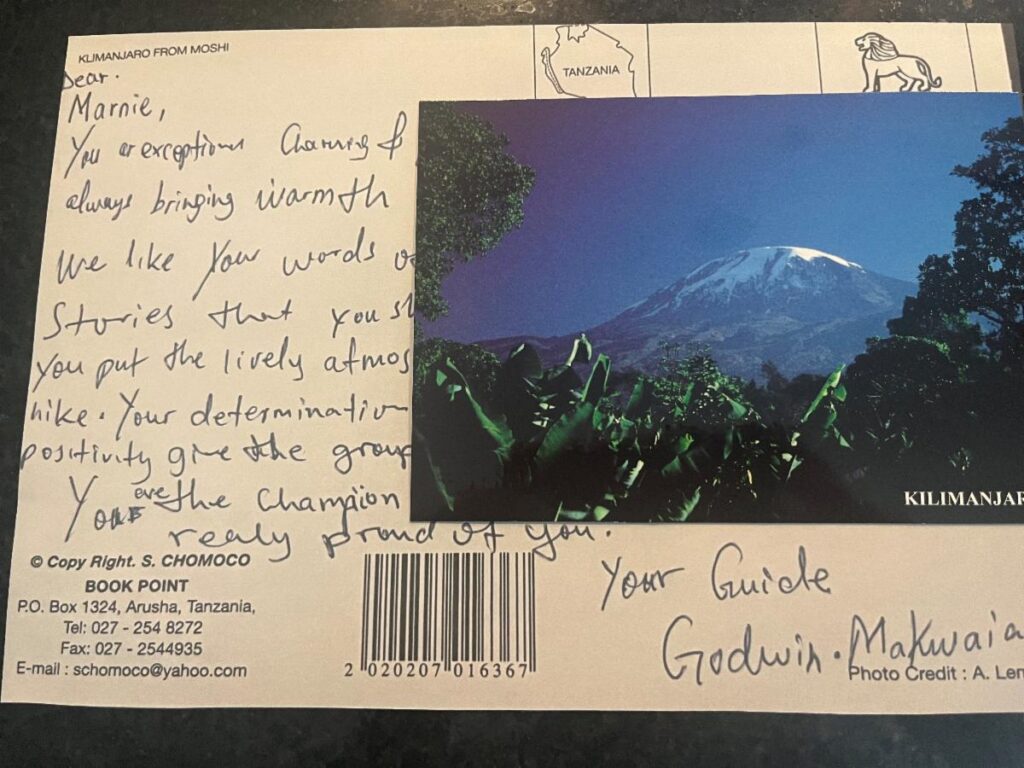 KLIMANJARO FROM MOSHI
TANZANIA
Dear.
Marnie,
You are exceptional Charming &
always bringing warmth
We like your words
Stories that you
you put the lively
hike. Your determination
positivity give the
You are the Champion
realy proud of you.
KILIMANJAR
© Copy Right. S. CHOMOCO
BOOK POINT
P.O. Box 1324, Arusha, Tanzania,
Tel: 027 - 254 8272
Fax: 027 - 2544935
E-mail : schomoco@yahoo.com
2 020207 016367
Your Guide
Godwin. Makwaia
Photo Credit : A. Len